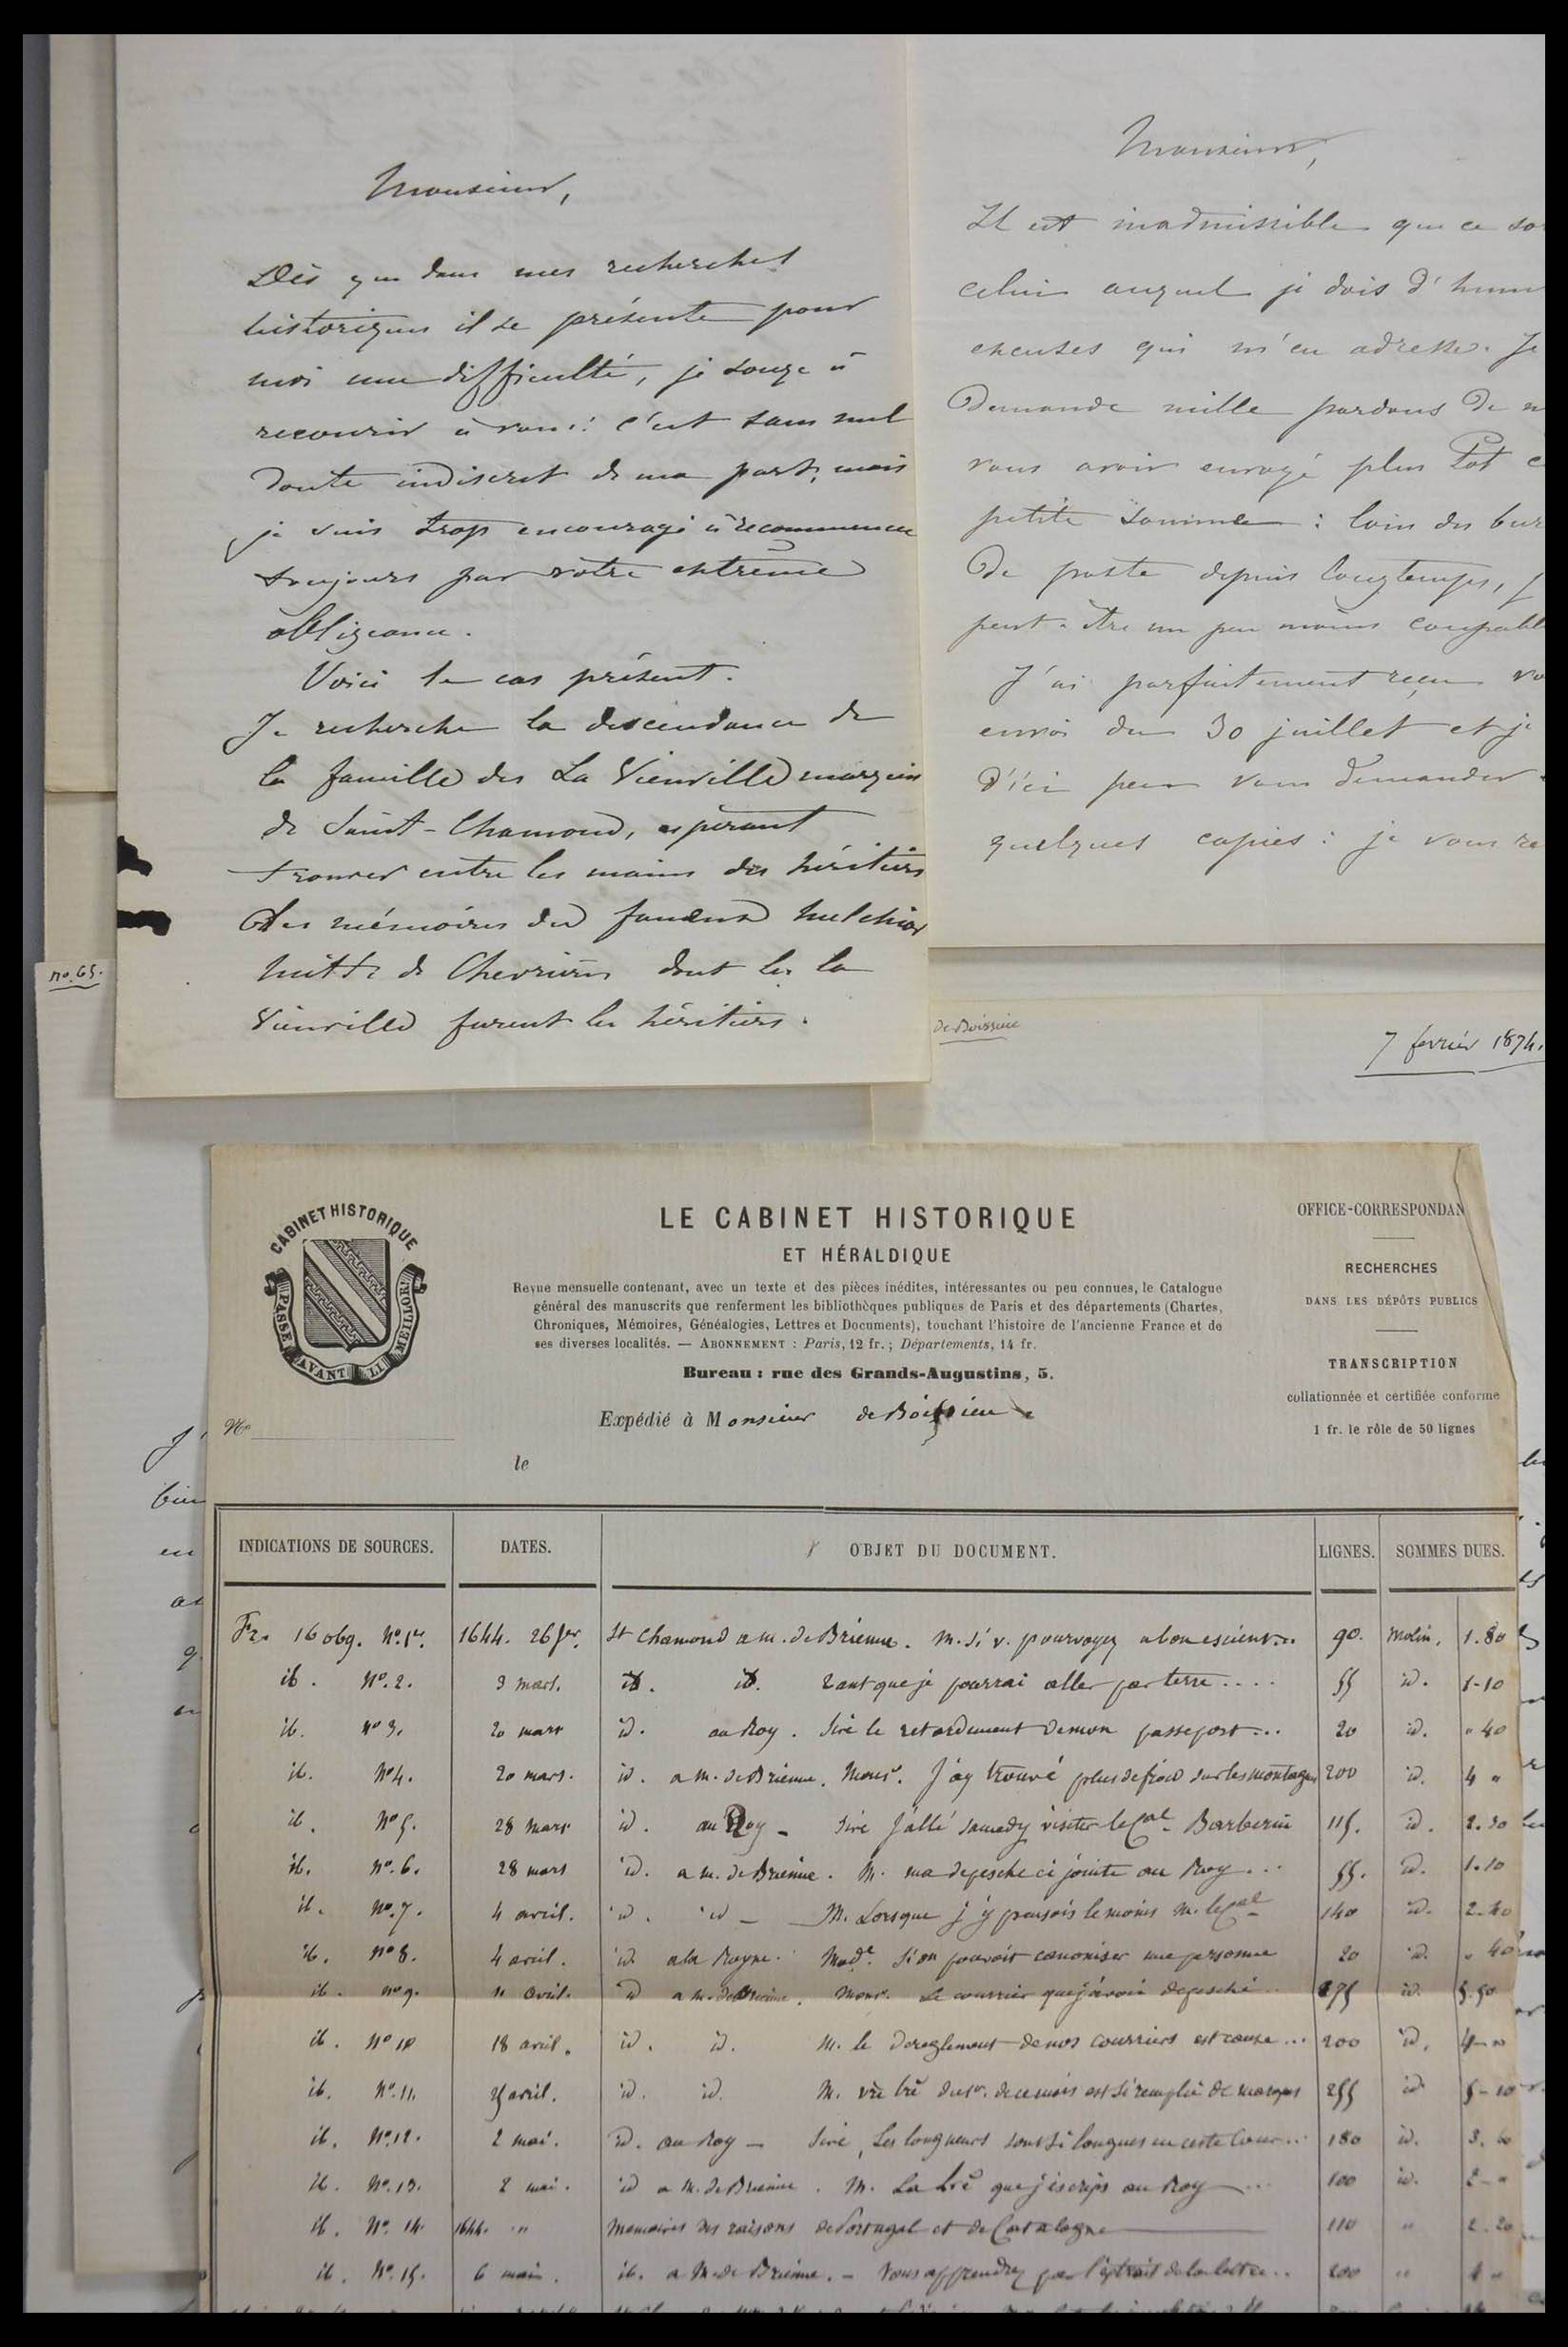 Monsieur,
Dès que dans mes recherches
historiques il se présente pour
moi une difficulté, je songe à
recourir à vous : c'est sans nul
doute indiscret de ma part, mais
je suis trop encouragé à recommencer
toujours par votre extrême
obligeance.
Voici le cas présent.
Je recherche la descendance de
la famille des La Vieuville marquis
de Saint-Chamond, espérant
trouver entre les mains des héritiers
des mémoires du fameux Melchior
Mitte de Chevrières dont les la
Vieuville furent les héritiers.
Monsieur,
Il est inadmissible que ce so
celui auquel je dois d'hum
excuses qui m'en adresse. Je
demande mille pardons de n
vous avoir envoyé plus tôt c
petite somme : loin du bur
de poste depuis longtemps, j
peut-être un peu moins coupabl
J'ai parfaitement reçu vo
envoi du 30 juillet et je
d'ici peu vous demander
quelques copies : je vous re
no. 65.
de Boissieu
7 fevrier 1874.
CABINET HISTORIQUE
PASSE AVANT LI MEILLOR
LE CABINET HISTORIQUE
ET HÉRALDIQUE
Revue mensuelle contenant, avec un texte et des pièces inédites, intéressantes ou peu connues, le Catalogue
général des manuscrits que renferment les bibliothèques publiques de Paris et des départements (Chartes,
Chroniques, Mémoires, Généalogies, Lettres et Documents), touchant l'histoire de l'ancienne France et de
ses diverses localités. — ABONNEMENT : Paris, 12 fr. ; Départements, 14 fr.
Bureau : rue des Grands-Augustins, 5.
Expédié à Monsieur de Boissieu
No
le
OFFICE-CORRESPONDAN
RECHERCHES
DANS LES DÉPÔTS PUBLICS
TRANSCRIPTION
collationnée et certifiée conforme
1 fr. le rôle de 50 lignes
INDICATIONS DE SOURCES. DATES. OBJET DU DOCUMENT. LIGNES. SOMMES DUES.
Fr. 16069. No. 1er. 1644. 26 fer. St Chamond a m. de Brienne. M. si v. pourvoyez a bon escient... 90. Molin. 1.80
ib. No. 2. 3 mars. id. id. tant que je pourrai aller par terre .... 55 id. 1-10
ib. No 3. 20 mars id. au Roy. Sire le retardement de mon passeport... 20 id. " 40
ib. No 4. 20 mars. id. a m. de Brienne. Monsr. J'ay trouvé plus de froid sur les montagnes 200 id. 4 "
ib. No 5. 28 mars id. au Roy - Sire J'allé samedy visiter le Cal. Barberin 115. id. 2.30
ib. No. 6. 28 mars id. a m. de Brienne. M. ma depesche ci jointe au Roy... 55. id. 1.10
ib. No. 7. 4 avril. id. id - M. Lorsque j'y pensois le moins M. le Cal 140 id. 2-80
ib. No 8. 4 avril. id. a la Royne. Made. Si on pouvoit canoniser une personne 20 id. " 40
ib. No 9. 11 avril. id a m. de Brienne. Monsr. Le courrier que j'avois depesché.. 275 id. 5.50
ib. No 10 18 avril. id. id. M. le dereglement de nos courriers est cause... 200 id. 4-"
ib. No. 11. 25 avril. id. id. M. vre lre du 1er. de ce mois est si remplie de marques 255 id 5-10
ib. No. 12. 2 mai. id. au Roy — Sire, Les longueurs sont si longues en ceste Cour... 180 id. 3.60
ib. No. 13. 2 mai. id a m. de Brienne. M. La lre que j'escrips au Roy — ... 100 id. 2-"
ib. No. 14. 1644. " Memoires des raisons de Portugal et de Catalogne 110 " 2.20
ib. No. 15. 6 mai. ib. a M. de Brienne. - Vous apprendrez par l'extrait de la lettre.. 200 " 4 "